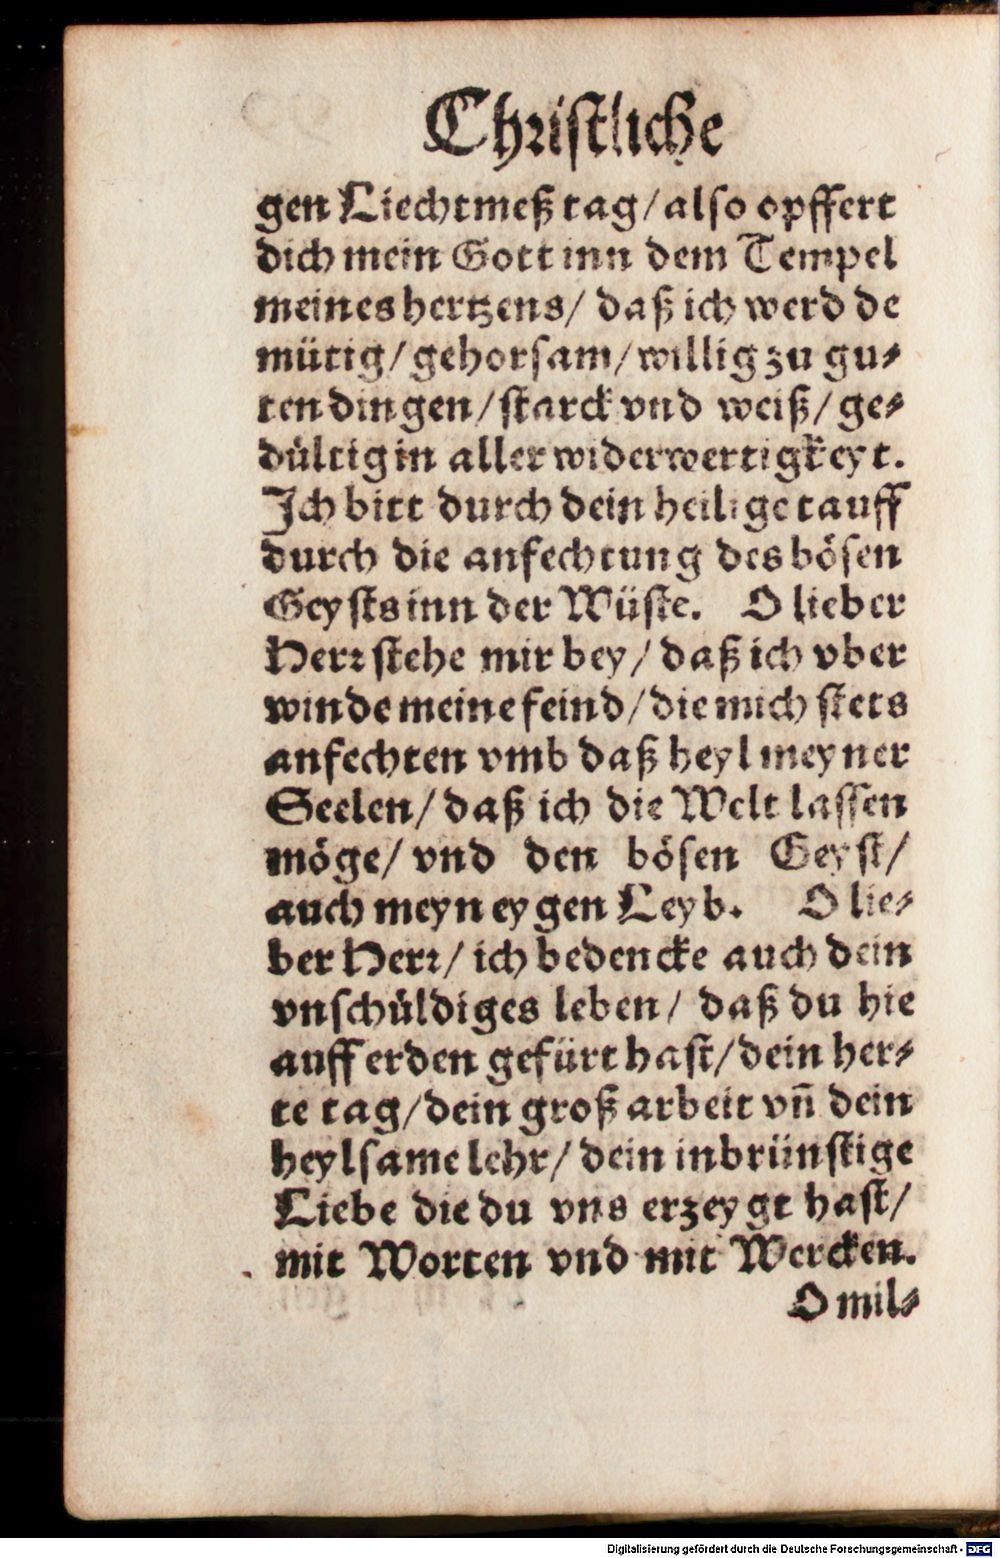 Christliche
gen Liechtmeß tag/ also opffert
dich mein Gott inn dem Tempel
meines hertzens/ daß ich werd de
mütig/ gehorsam/ willig zu gu⸗
ten dingen/ starck vnd weiß/ ge⸗
dültig in aller widerwertigkeyt.
Ich bitt durch dein heilige tauff
durch die anfechtung des bösen
Geysts inn der Wüste. O lieber
Herr stehe mir bey/ daß ich vber
winde meine feind/ die mich stets
anfechten vmb daß heyl meyner
Seelen/ daß ich die Welt lassen
möge/ vnd den bösen Geyst/
auch meyn eygen Leyb. O lie⸗
ber Herr/ ich bedencke auch dein
vnschüldiges leben/ daß du hie
auff erden gefürt hast/ dein her⸗
te tag/ dein groß arbeit vñ dein
heylsame lehr/ dein inbrünstige
Liebe die du vns erzeygt hast/
mit Worten vnd mit Wercken.
O mil⸗
Digitalisierung gefördert durch die Deutsche Forschungsgemeinschaft - DFG